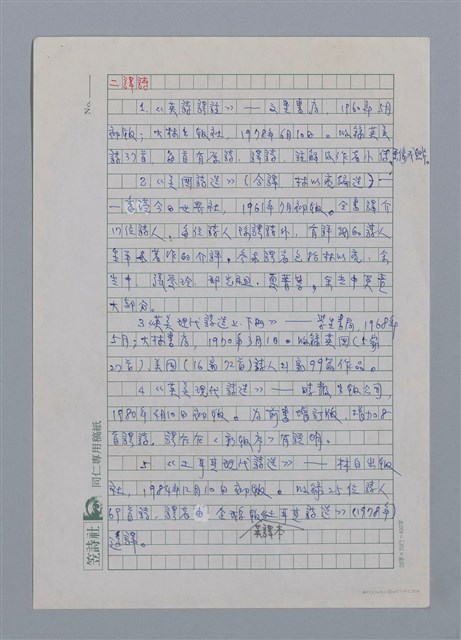 No.
二、譯詩
1.《英詩譯註》——文星書店，1960年5月
初版；大林出版社，1978年6月10日。收錄英美
詩37首，每首有原詩，譯詩，註解及作者小傳
2.《美國詩選》（合譯，林以亮編選）—
—香港今日世界社，1961年7月初版。全書譯介
17位詩人，每位詩人除譯詩外，有詳細的詩人
生平
大部分。
3.《英美現代詩選上、下冊》——學生書局，1968年
5月；大林書店，1970年3月1日。收錄英國（
27首），美國（16家72首）詩人21家99篇作品。
4.《英美現代詩選》——時報出版公司，
1980年 月10日初版。為前書增訂版，增加8
首譯詩。譯介在《新版序》有說明。
5.《土耳其現代詩選》——林白出版
社，1984年12月10日初版。收錄25位詩人
69首詩，譯者由企鵝版《土耳其詩選》（1978年）
英譯本
笠詩社
同仁專用稿紙